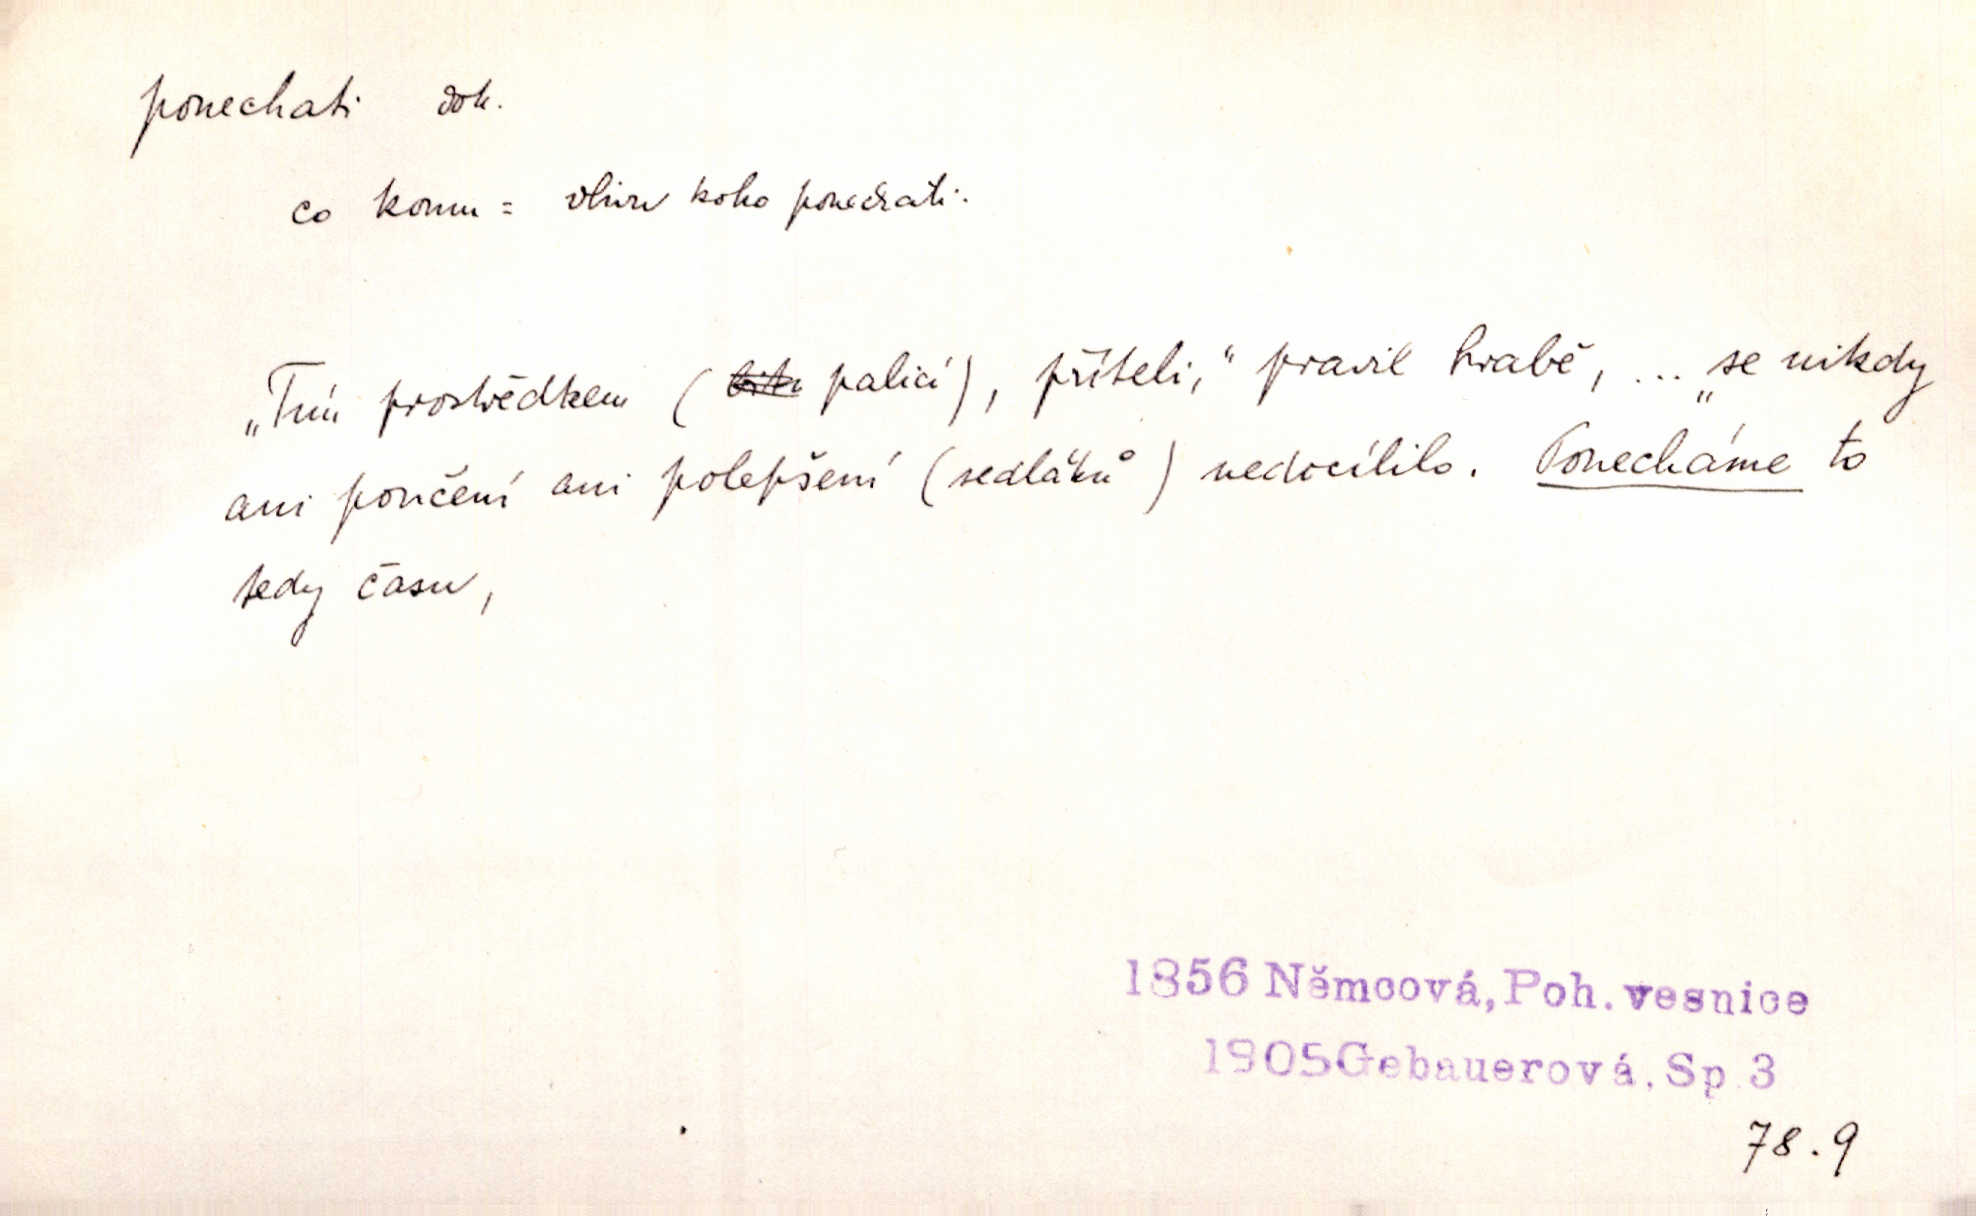 ponechati dok.
co komu = vlivu koho ponechati.
„Tím prostředkem ( palicí), příteli,“ pravil hrabě, ... „se nikdy
ani poučení ani polepšení (sedláků) nedocílilo. Ponecháme to
tedy času,
1856 Němcová, Poh. vesnice
1905 Gebauerová, Sp. 3
78.9